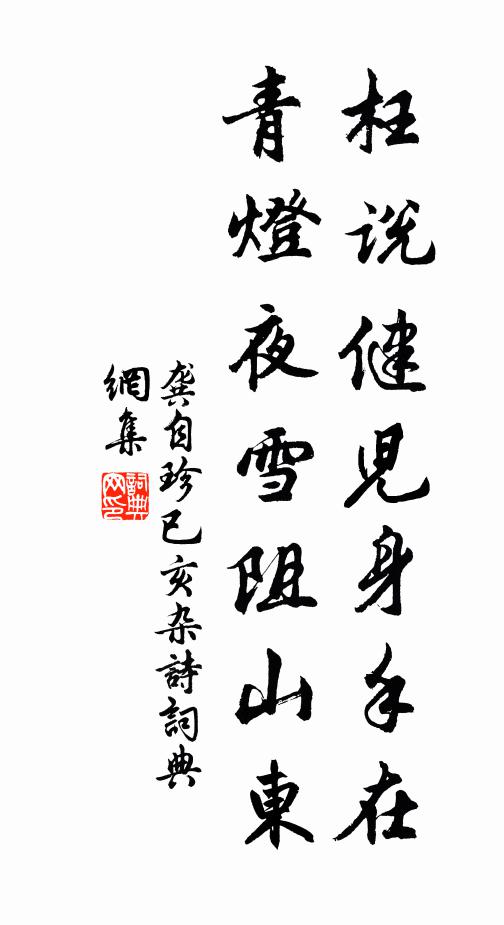 枉说健児身手在
青燈夜雪阻山東
龚自珍己亥杂詩詞典
網集
詞典
网印